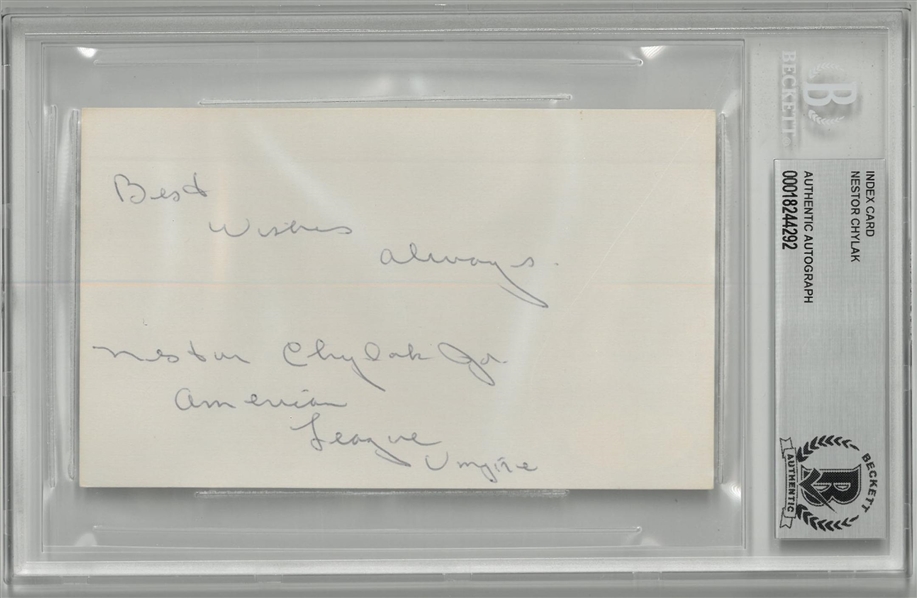 Best
Wishes
always.
Nestor Chylak Jr.
American
League
Umpire
BECKETT
B
INDEX CARD
NESTOR CHYLAK
AUTHENTIC AUTOGRAPH
00018244292
BECKETT
B
AUTHENTIC